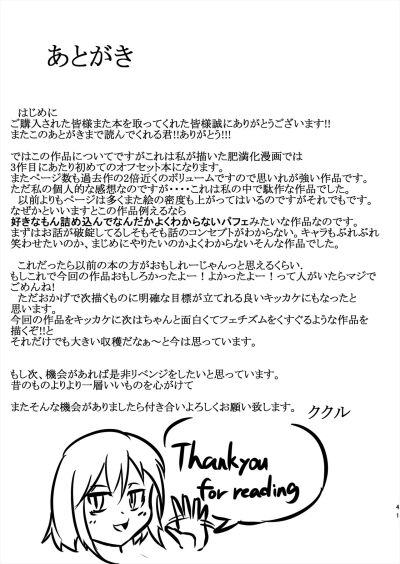 あとがき
はじめに
ご購入された皆様また本を取ってくれた皆様誠にありがとうございます!!
またこのあとがきまで読んでくれる君!!ありがとう!!!
ではこの作品についてですがこれは私が描いた肥満化漫画では
3作目にあたり初めてのオフセット本になります。
またページ数も過去作の2倍近くのボリュームですので思いれが強い作品です。
ただ私の個人的な感想なのですが・・・・これは私の中で駄作な作品でした。
以前よりもページは多くまた絵の密度も上がってはいるのですがそれでもです。
なぜかといいますとこの作品例えるなら
好きなもん詰め込んでなんだかよくわからないパフェみたいな作品なのです。
まずはお話が破綻してるしそもそも話のコンセプトがわからない。キャラもぶれぶれ
笑わせたいのか、まじめにやりたいのかよくわからないそんな作品でした。
これだったら以前の本の方がおもしれーじゃんっと思えるくらい.
もしこれで今回の作品おもしろかったよー！よかったよー！って人がいたらマジで
ごめんね!
ただおかげで次描くものに明確な目標が立てれる良いキッカケにもなったと
思います。
今回の作品をキッカケに次はちゃんと面白くてフェチズムをくすぐるような作品を
描くぞ!!と
それだけでも大きい収穫だなぁ～と今は思っています。
もし次、機会があれば是非リベンジをしたいと思っています。
昔のものよりより一層いいものを心がけて
またそんな機会がありましたら付き合いよろしくお願い致します。
ククル
Thankyou
for reading
41